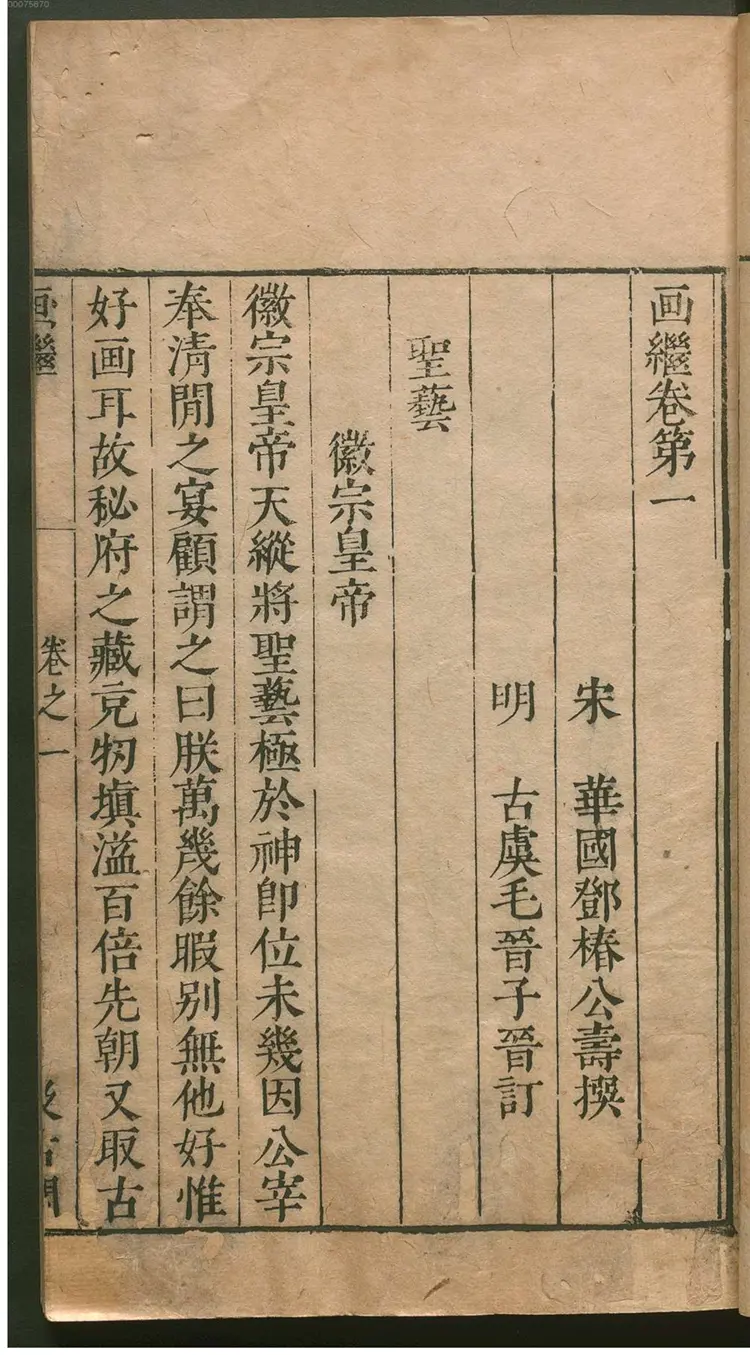 画繼卷第一
宋 華國鄧椿公壽撰
明 古虞毛晉子晉訂
聖藝
徽宗皇帝
徽宗皇帝天縱將聖藝極於神卽位未幾因公宰
奉清閒之宴顧謂之曰朕萬幾餘暇别無他好惟
好画耳故秘府之藏充牣填溢百倍先朝又取古
画繼 卷之一
00075870